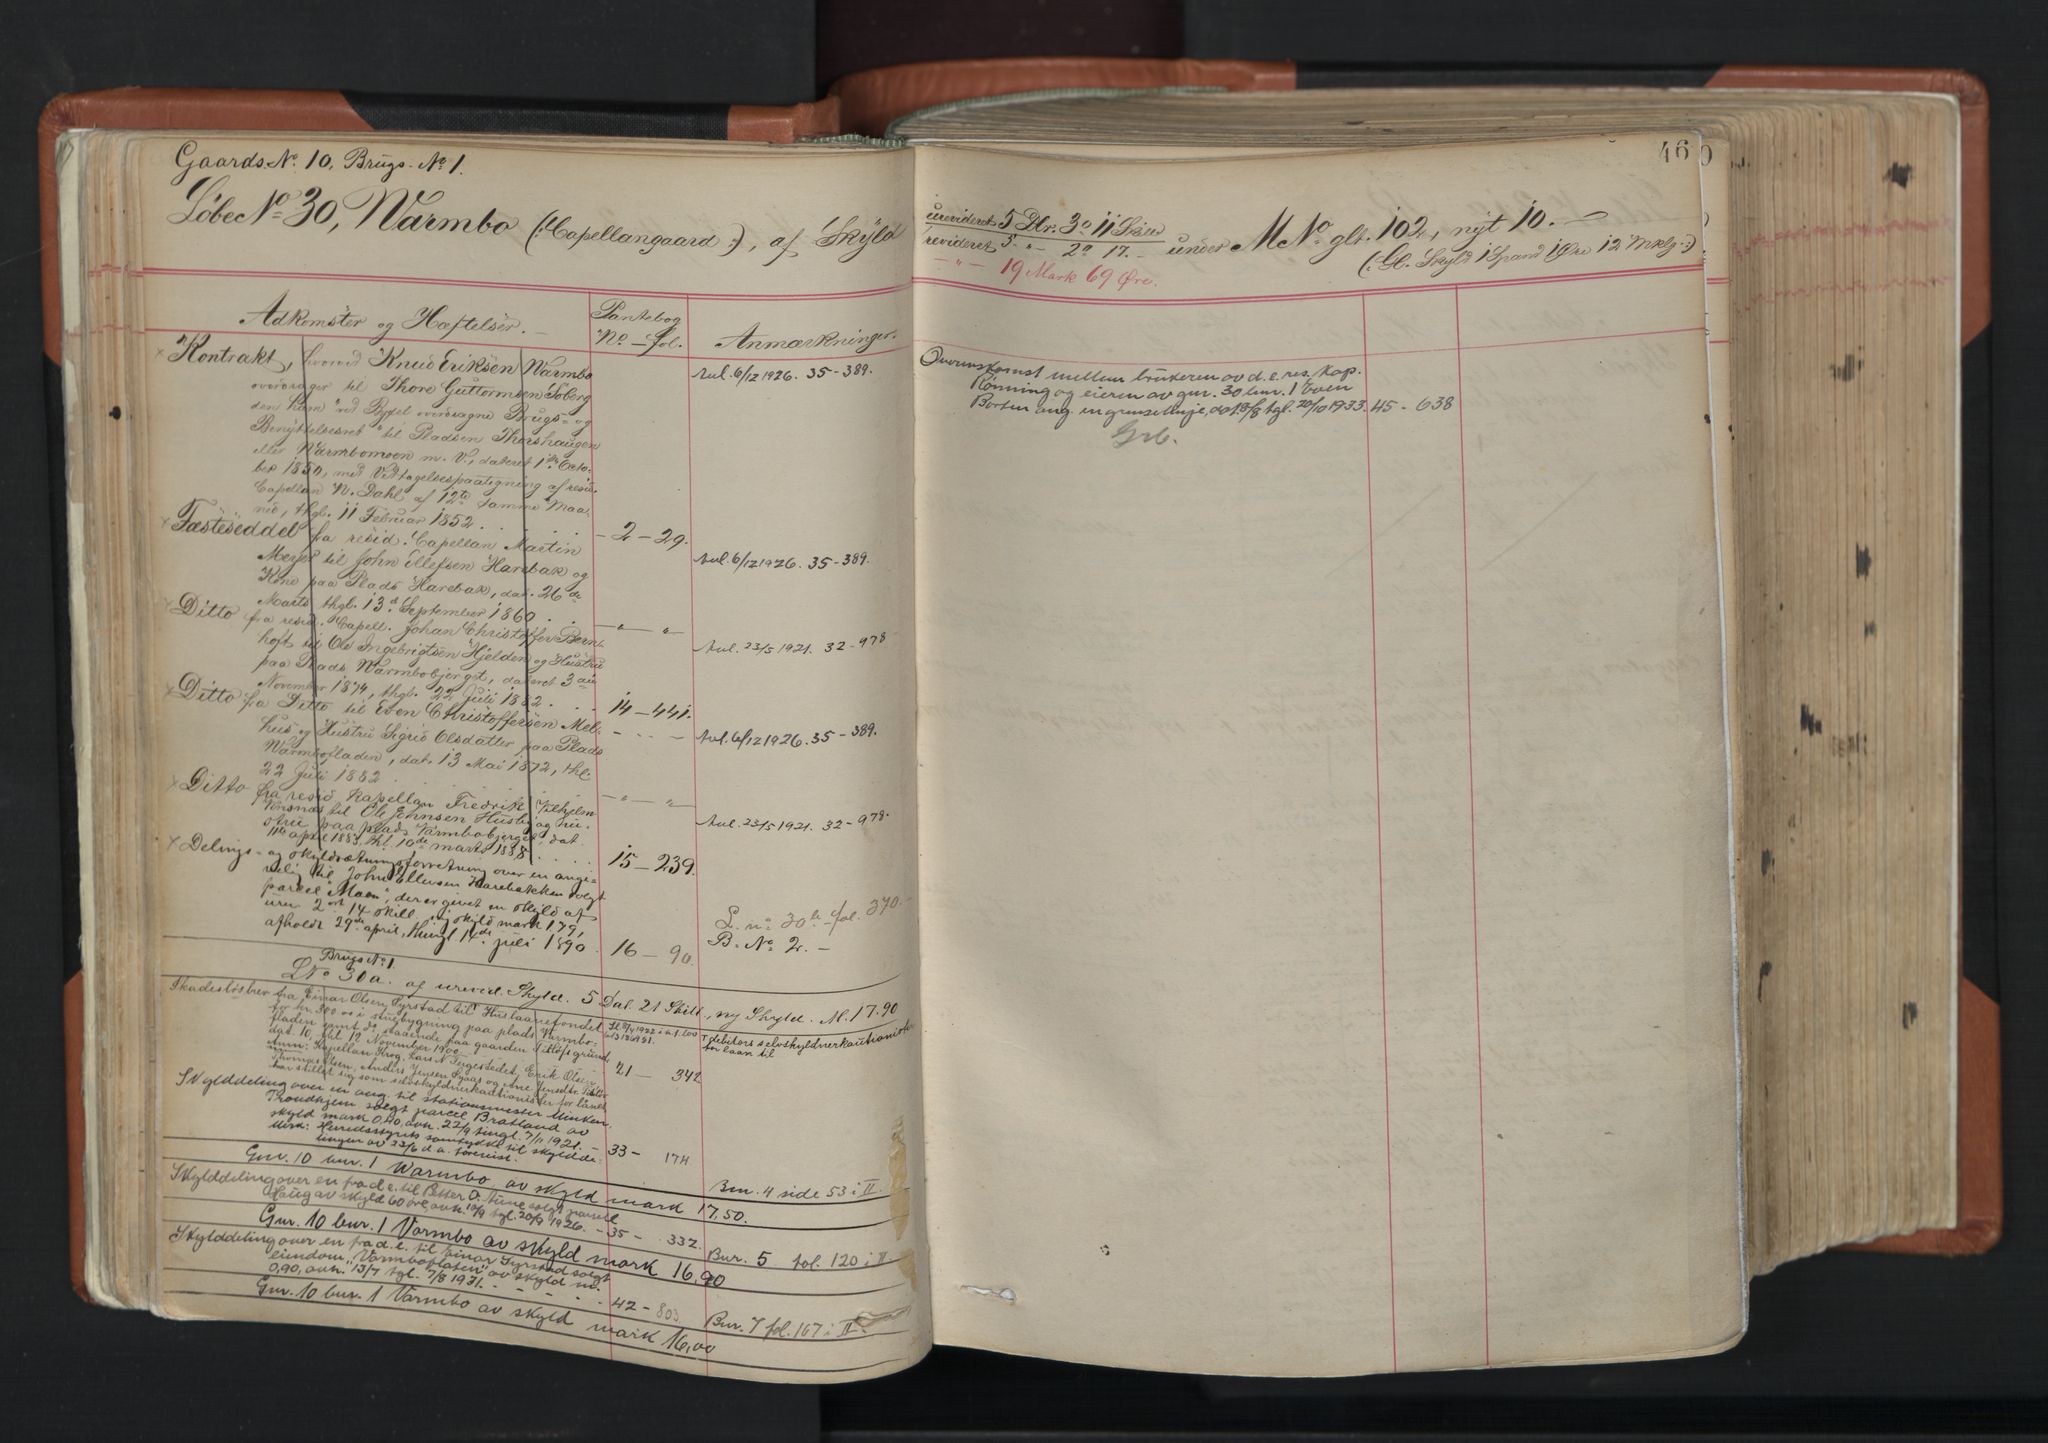 Gaards-No. 10, Brugs-No 1.
46
LöbeNo 30, Warmbo (:Capellangaard:), af Skyld
urevideret 5 Dlr. 3 o 11 Skill
revideret 5 - " - 2 o 17. -
under MNo glt. 102, nyt 10. -
(:Gl. Skyld 1 Spand 1 Øre 12 Mklg:)
- " - 19 Mark 69 Øre.
Adkomster og Hæftelser. -
Pantebog
No - fol.
Anmærkninger.
Kontrakt, hvorved Knud Eriksen Warmbo
overdrager til Thore Guttormsen Soberg
den ham ved Bydel overdragne Brugs- og
Benyttelsesret til Pladsen Thorshaugen
eller Warmbomoen m. V., dateret 1ste Octo-
ber 1850, med Vedtagelsespaategning af resid.
Capellan N. Dahl af 12te samme Maa-
ned, thgl. 11 Februar 1852 . . - 2 - 29.
Aul. 6/12 1926. 35-389.
Fæsteseddel fra resid. Capellan Martin
Meyer til John Ellefsen Harebak og
Kone paa Plads Harebak, dat. 26de
Marts thgl. 13d September 1860 . . - " - "
Aul. 6/12 1926. 35-389.
Ditto fra resid. Capell. Johan Christoffer Bern-
hoft til Ole Ingebrigtsen Hjelden og Hustru
paa Plads Warmbobjerget, dateret 3die
November 1874, thgl. 22 Juli 1882 . . . 14 - 441.
Aul. 23/5 1921. 32-978
Ditto fra Ditto til Even Christoffersen Mel-
hus og Hustru Sigrid Olsdatter paa Plads
Warmbofladen, dat. 13 Mai 1872, thl.
22 Juli 1882 . . . - " - "
Aul. 6/12 1926. 35-389.
Ditto fra resid. Kapellan Fredrik Vilhelm
Knsnæs til Ole Johnsen Husby og hu-
stru paa plads Varmbobjerget, dat.
11te april 1883, thl. 10de marts 1888 . . . . 15 - 239.
Aul. 23/5 1921. 32-978.
Delings- og skyldsætningsforretning over en angi-
velig til John Ellevsen Harebakken solgt
parcel "Moen", der er givet en skyld af
urev. 2 ort 14 skill, ny skyld mark 1,79,
afholdt 29de april, thingl 14de juli 1890. 16 - 90.
L. no 30 b fol. 370.-
B. No 2. -
Brugs No 1.
LNo 30a. af urevid. Skyld. 5 Dal. 21 Skill, ny Skyld. M. 17.90
Skadesløsbrev fra Einar Olsen Syrstad til Huslaanefondet
for kr. 300 oo i stuebygning paa plads Varmbo-
fladen samt do. staaende paa gaarden Tilløfsgrund,
dat 10, tgl 12 November 1900
Anm: Kapellan Krog, Lars N. Tegestedet, Erik Olsen,
Thomas Olsen, Anders Jensen Sjaas og Arne Jensdtr. Tilløv
har stillet sig som selvskyldnerkautionister for laanet. 21 - 342
debitors selvskyldnerkautionister
for laan til
Skylddeling over en ang. til stationsmester Minken,
Trondhjem solgt parcel Bratland av
skyld mark 0,40, avh. 22/9 tingl. 7/11 1921. - 33 - 174
Mrk: Herredsstyrets samtykke til skyldde-
lingen av 23/6 d.a. forevist.
Bnr. 4 side 53 i II.
Gnr. 10 bnr. 1 Warmbo, av skyld mark 17,50.
Skylddeling over en fra d.e. til Petter O. Aune solgt parcell
Haug av skyld 60 øre, avh. 10/9 tgl. 20/9 1926. - 35 - 332.
Bnr. 5 fol. 120 i II
Gnr. 10 bnr. 1 Varmbo av skyld mark 16,90
Skylddeling over en fra d.e. til Einar Syrstad solgt
eiendom, "Varmboflaten" av skyld m.
0,90, avh. 13/7 tgl. 7/8 1931. - - - - 42 - 803.
Bnr. 7 fol. 167 i II.
Gnr. 10 bnr. 1 Varmbo av skyld mark 16,00
Overenskomst mellem brukeren av d.e. res. kap.
Rønning og eieren av gnr. 30 bnr. 1 Even
Borten ang. en grenselinje, dat. 18/8 tgl. 20/10 1933. 45 - 638
Grb.